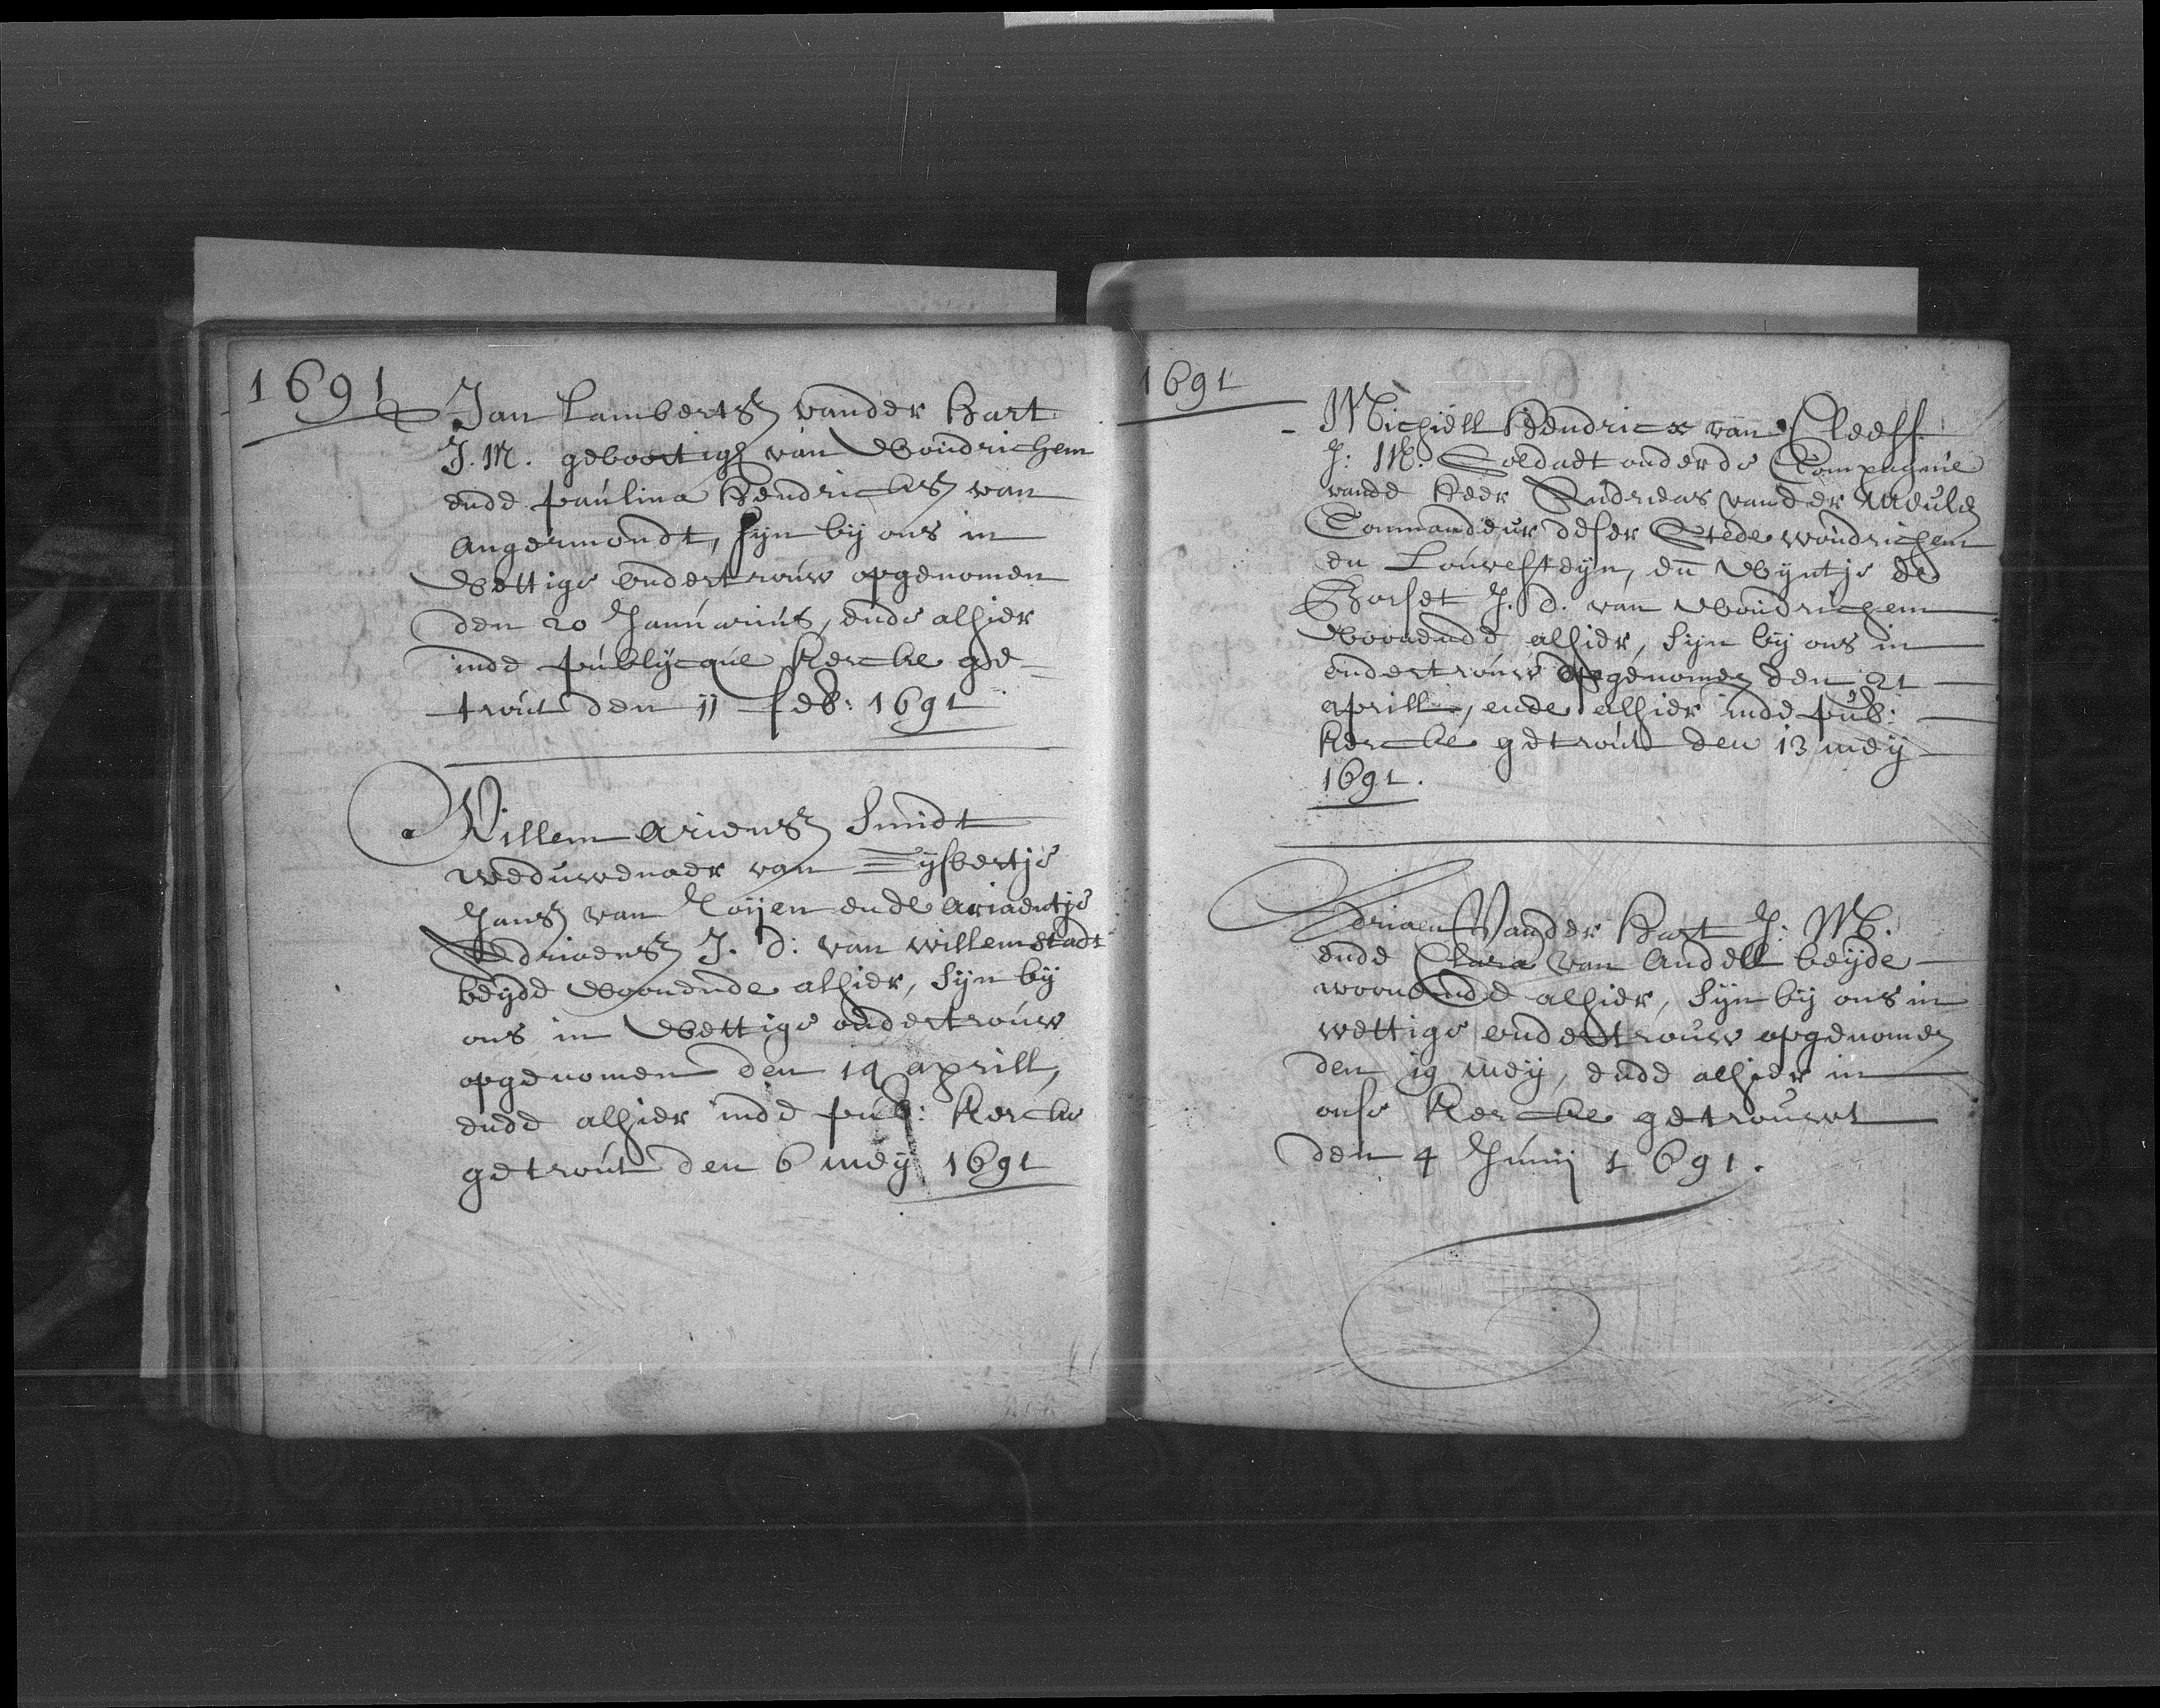 1691
Jan Lambertsz vander Hart
J. M. geboortigh van Woudrichem
ende paulina Hendricksz van
Angermondt, sijn bij ons in
Wettige ondertrouw opgenomen
den 20 Januarius, ende alhier
inde publijcque Kercke ge-
trout den 11 feb: 1691
Willem Ariensz Smidt
weduwenaer van Gijsbertje
Jansz van ende Ariaentje
Adriaensz J. d: van willemstadt
beijde Woonende alhier, sijn bij
ons in Wettige ondertrouw
opgenomen den 19 aprill,
ende alhier inde pub: Kercke
getrout den 6 meij 1691
1691
Michiell Hendricx van Cleeff
J: M: Soldaet onder de Compagnie
vande Heer Andreas vander Meulen
Commandeur deser Stede woudrichem
en Louwesteijn, en Wijntje de
Gorset J. d. van Woudrichem
Woonende alhier, sijn bij ons in
ondertrouw opgenomen den 21
aprill, ende alhier inde pub:
Kercke getrout den 13 meij
1691.
Adriaen Vander Hart J: M.
ende Clara van Andell beijde
woonende alhier, sijn bij ons in
wettige ondertrouw opgenomen
den 19 meij, ende alhier in
onse Kercke getrouwt
den 4 Junij 1691.